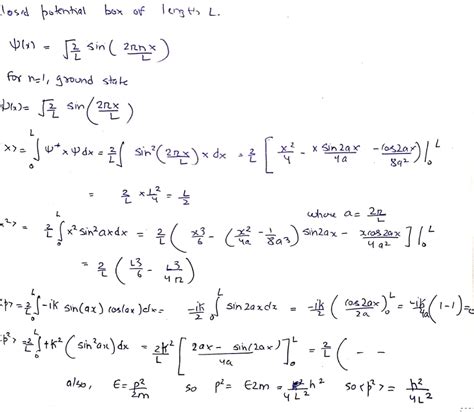 losed potential box of length L.
ψ(x) = √2/L sin (2πnx/L)
for n=1, ground state
ψ(x) = √2/L sin (2πx/L)
x> = ∫₀ᴸ ψ* x ψ dx = 2/L ∫ sin²(2πx/L) x dx = 2/L [x²/4 - x sin2ax/4a - cos2ax/8a²]|₀ᴸ
= 2/L × L²/4 = L/2
where a = 2π/L
x²> = 2/L ∫₀ᴸ x² sin²ax dx = 2/L (x3/6 - (x²/4a - 1/8a3) sin2ax - xcos2ax/4a²]|₀ᴸ
= 2/L (L3/6 - L3/4π)
<p> = 2/L ∫₀ᴸ -iħ sin(ax) cos(ax) dx = -iħ/2 ∫₀ᴸ sin2ax dx = -iħ/2 (cos2ax/2a)₀ᴸ = -iħ/4a (1-1) = 0
<p²> = 2/L ∫₀ᴸ +ħ² (sin²ax) dx = 2ħ²/L [2ax - sin(2ax)/4a]₀ᴸ = 2/L ( - -
also, E = p²/2m so p² = E2m = h²/4L² so <p²> = h²/4L²